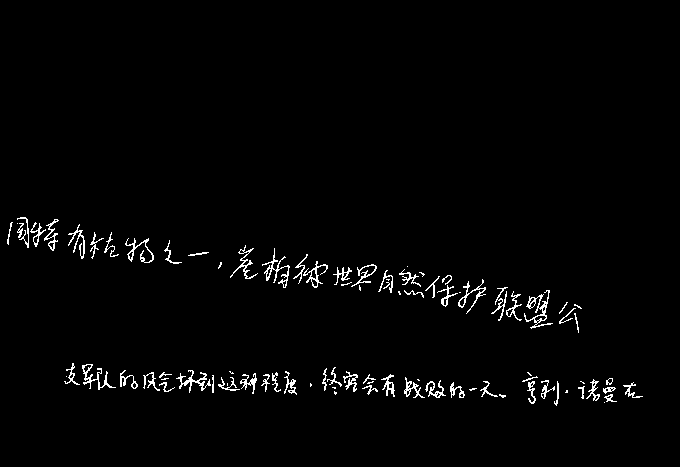 国特有植物之一，崖柏被世界自然保护联盟公
支军队的风气坏到这种程度，终究会有战败的一天。亨利·诺曼在